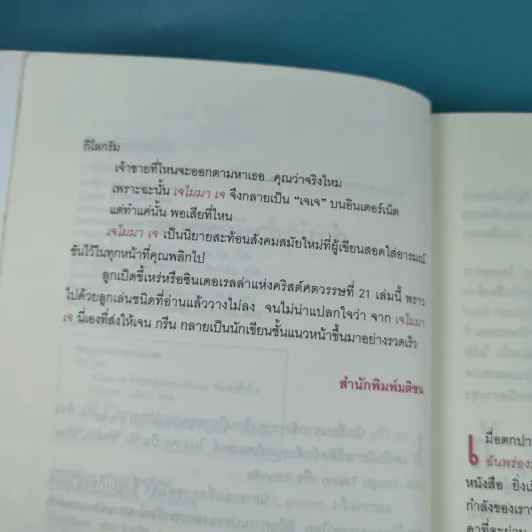 กิโลกรัม
เจ้าชายที่ไหนจะออกตามหาเธอ...คุณว่าจริงไหม
เพราะฉะนั้น เจไมมา เจ จึงกลายเป็น “เจเจ” บนอินเตอร์เน็ต
แต่ทำแค่นั้น พอเสียที่ไหน
เจไมมา เจ เป็นนิยายสะท้อนสังคมสมัยใหม่ที่ผู้เขียนสอดใส่อารมณ์
ขันไว้ในทุกหน้าที่คุณพลิกไป
ลูกเป็ดขี้เหร่หรือซินเดอเรลล่าแห่งคริสต์ศตวรรษที่ 21 เล่มนี้ พราว
ไปด้วยลูกเล่นชนิดที่อ่านแล้ววางไม่ลง จนไม่น่าแปลกใจว่า จาก เจไมมา
เจ นี่เองที่ส่งให้เจน กรีน กลายเป็นนักเขียนชั้นแนวหน้าขึ้นมาอย่างรวดเร็ว
สำนักพิมพ์มติชน
เมื่อตกปา
ฉันพร่อง
หนังสือ ยิ่งเ
กำลังของเรา